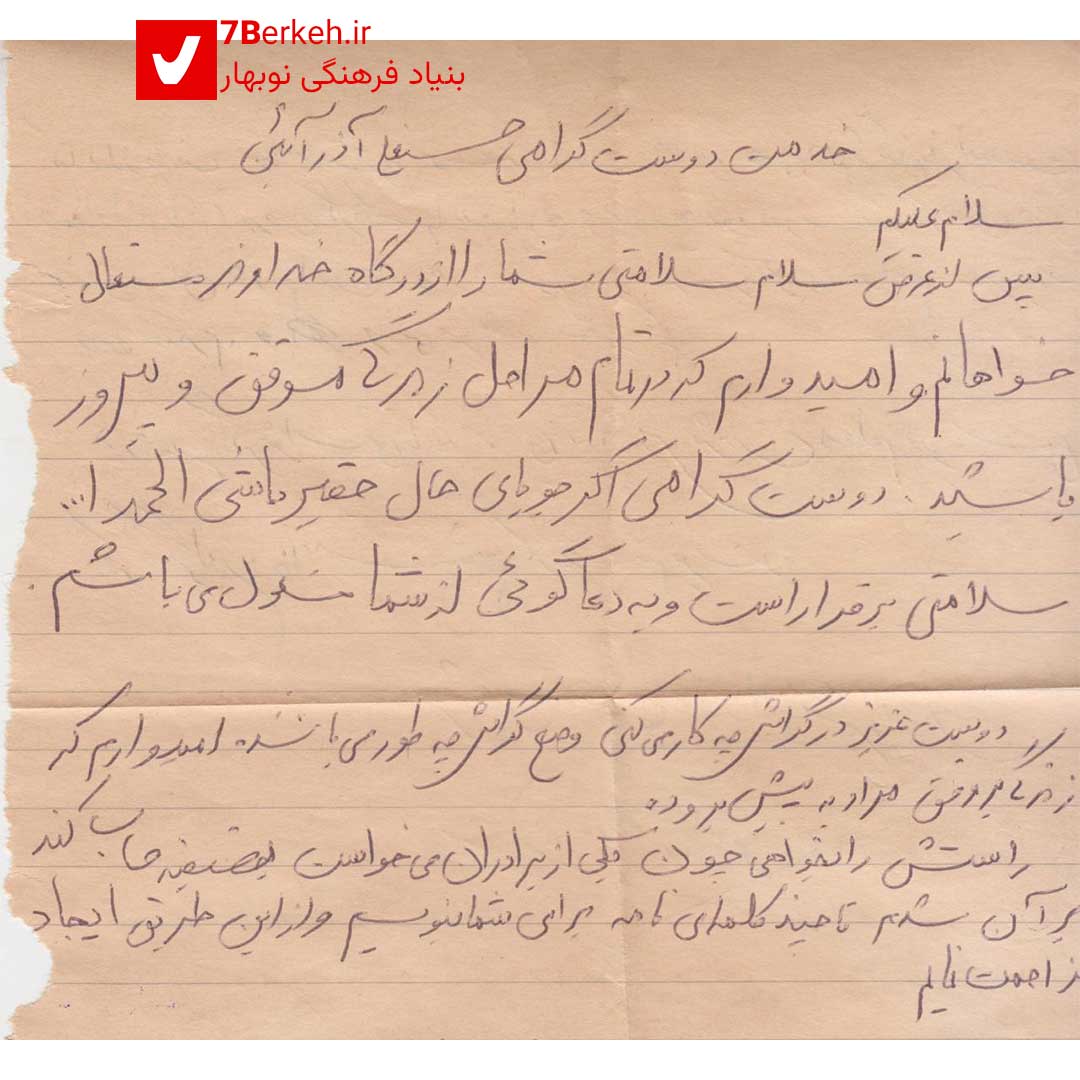 7Berkeh.ir
بنیاد فرهنگی نوبهار
خدمت دوست گرامی حسنعلی آذرآئین
سلام علیکم
پس از عرض سلام سلامتی شما را از درگاه خداوند متعال
خواهانم و امیدوارم که در تمام مراحل زندگی موفق و پیروز
باشید. دوست گرامی اگر جویای حال حقیر باشی الحمد ا...
سلامتی برقرار است و به دعاگوئی از شما مشغول می باشم.
دوست عزیز در گراش چه کار می کنی وضع گراش چه طور می باشد. امیدوارم که
زندگی بر وفق مراد به پیش برود.
راستش را بخواهی چون یکی از برادران می خواست به کند
بر آن شدم تا چند کلمه ای نامه برای شما بنویسم و از این طریق ایجاد
مزاحمت نمایم